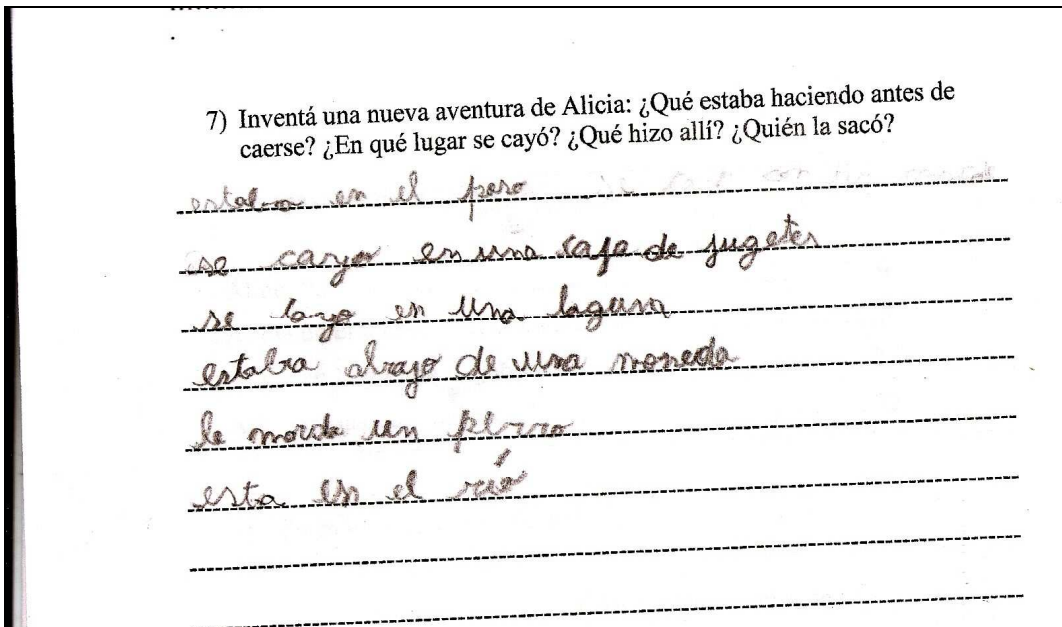 7) Inventá una nueva aventura de Alicia: ¿Qué estaba haciendo antes de
caerse? ¿En qué lugar se cayó? ¿Qué hizo allí? ¿Quién la sacó?
estaba en el poso
se cayo en una caja de jugetes
se cayo en una laguna
estaba abajo de una moneda
le morde un perro
esta en el río